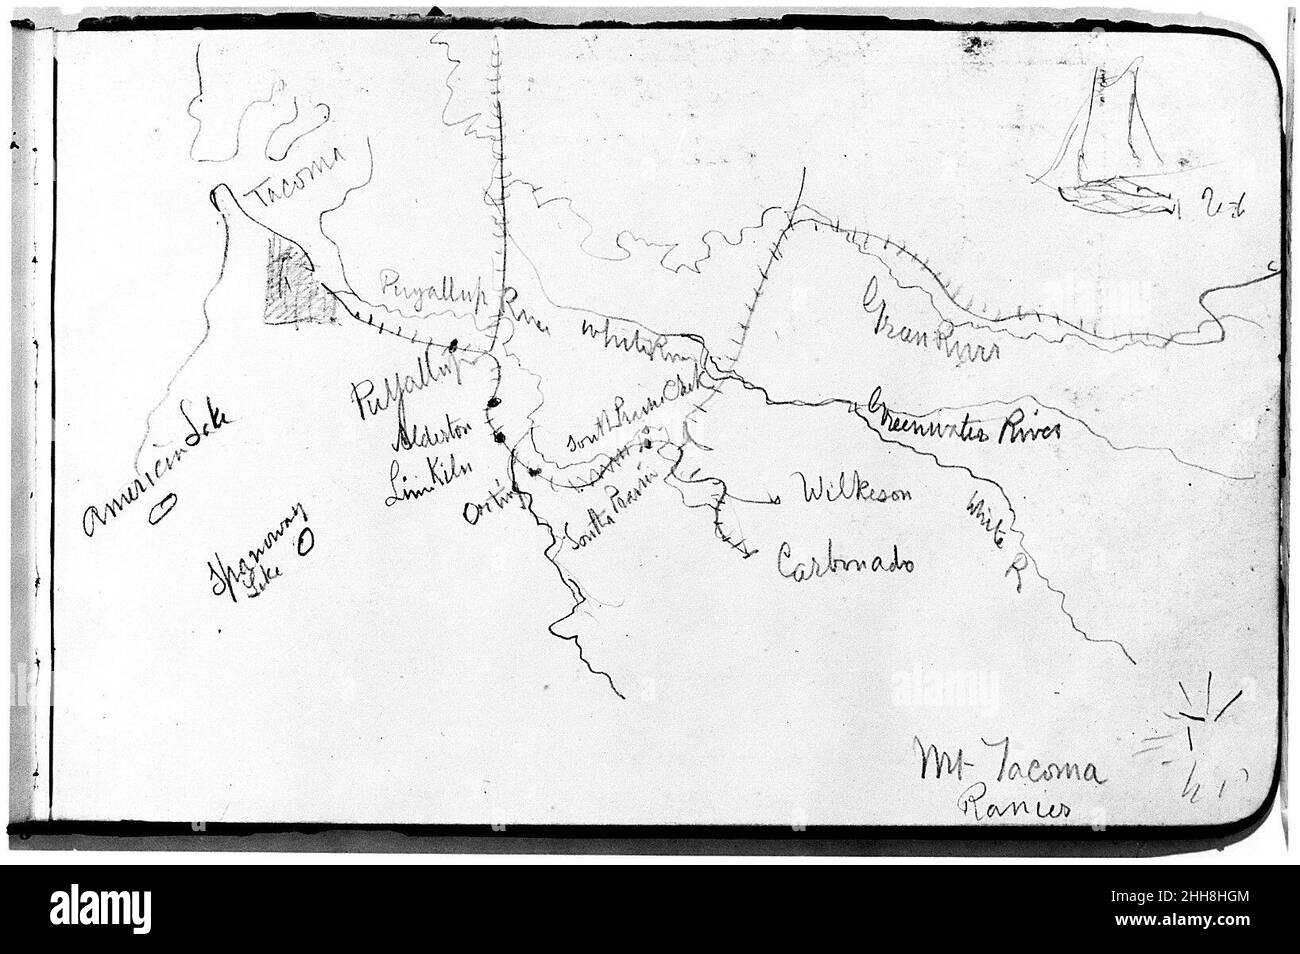 Tacoma
Puyallup River
White River
Green River
Puyallup
South Prairie Creek
Greenwater River
American Lake
Alderton
Lime Kiln
Orting
South Prairie
Wilkeson
White R
Spanoway
Lake
Carbonado
Mt Tacoma
Ranier
alamy
alamy
alamy
Image ID: 2HH8HGM
www.alamy.com